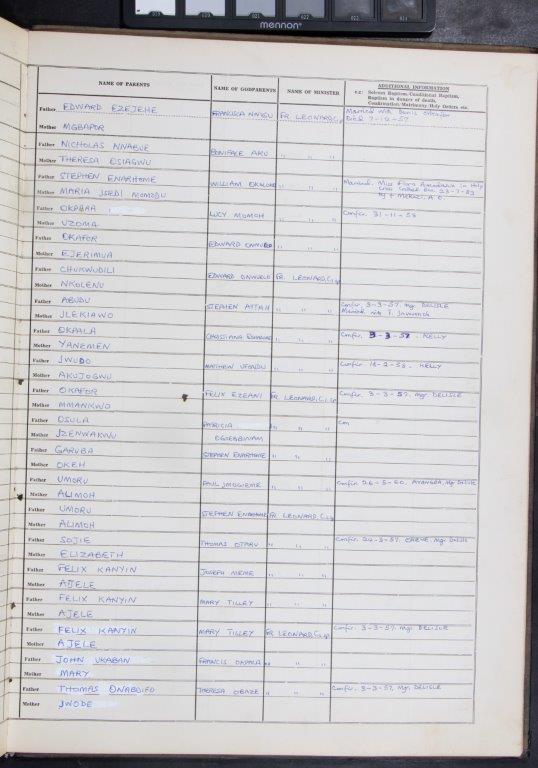 mennon
NAME OF PARENTS NAME OF GODPARENTS NAME OF MINISTER ADDITIONAL INFORMATION
e.g.: Solemn Baptism/Conditional Baptism,
Baptism in danger of death,
Confirmation/Matrimony/Holy Orders etc.
Father EDWARD EZEJEHE FR. LEONARD Married with
Died 7-12-57
Mother MGBAFOR
Father NICHOLAS NNABUE BONIFACE AKU " " "
Mother THERESA OSIAGWU
Father STEPHEN ENARHOME WILLIAM " " " Married Miss Flora in Holy
Cross Cathed. 23-7-83
Mother MARIA JSEBI MOMODU
Father OKPARA LUCY MOMOH " " " Confir. 31-11-58
Mother UZOMA
Father OKAFOR EDWARD " " "
Mother EJERIMUA
Father CHUKWUDILI EDWARD ONWUELO FR. LEONARD
Mother NKOLENU
Father ABUDU STEPHEN ATTAH " " " Confir. 3-3-57. Mgr. DELISLE
Married with
Mother JLEKIAWO
Father OKPALA CHRISTIANA " " " Confir. 3-3-58. KELLY
Mother YANEMEN
Father JWUDO MATTHEW " " " Confir. 16-2-58. KELLY
Mother AKUJOGWU
Father OKAFOR FELIX EZEANI FR. LEONARD Confir. 3-3-57. Mgr. DELISLE
Mother MMANKWO
Father OSULA PATRICIA " " " Con
Mother JZENWAKWU OGIEBBINAM
Father GARUBA STEPHEN ENARHOME " " "
Mother OKEH
Father UMORU PAUL JMOUKHEME " " " Confir. 26-5-60. Mgr. Delisle
Mother ALIMOH
Father UMORU STEPHEN ENARHOME FR. LEONARD
Mother ALIMOH
Father SOJIE THOMAS OTARU " " " Confir. 24-3-57. Mgr. Delisle
Mother ELIZABETH
Father FELIX KANYIN JOSEPH MEME " " "
Mother AJELE
Father FELIX KANYIN MARY TILLEY " " "
Mother AJELE
Father FELIX KANYIN MARY TILLEY FR. LEONARD Confir. 3-3-57. Mgr. DELISLE
Mother AJELE
Father JOHN UKABAN FRANCIS OKPALA " " "
Mother MARY
Father THOMAS ONABOIFO THERESA OBAZE " " " Confir. 3-3-57. Mgr. DELISLE
Mother JWODE